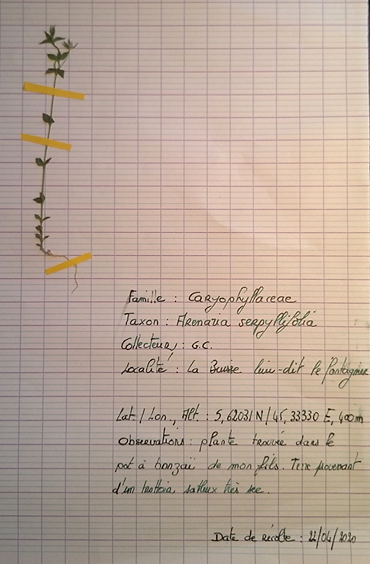 Famille : Caryophyllaceae
Taxon : Arenaria serpyllifolia
Collecteur : G.C.
Localité : La Buisse lieu-dit le
Lat / Lon, Alt. : 5,62031 N / 45,33330 E, 400m
Observations : plante trouvée dans le
pot à bonzaï de mon fils. Terre provenant
d'un trottoir, très sec.
Date de récolte : /04/2020